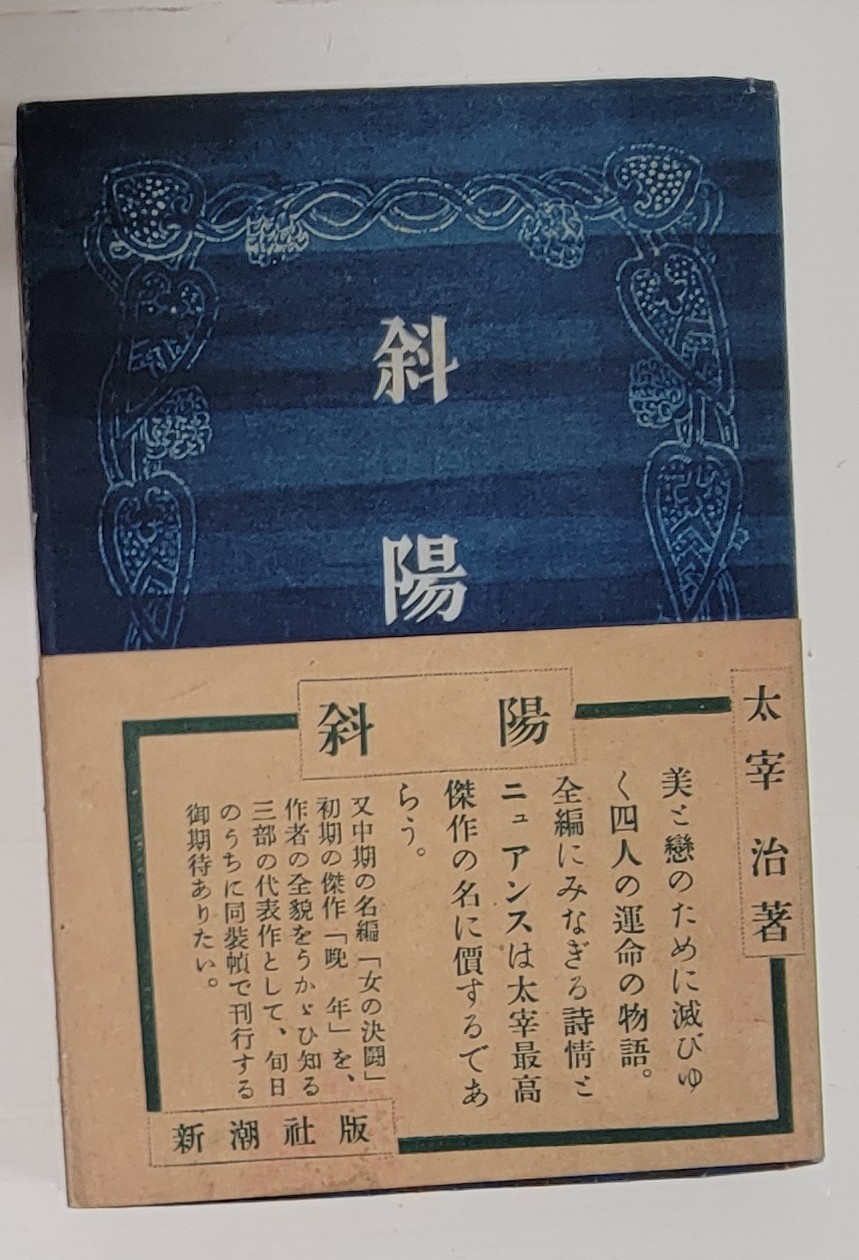 斜陽
斜陽
太宰治著
美と戀のために滅びゆ
く四人の運命の物語。
全編にみなぎる詩情と
ニュアンスは太宰最高
傑作の名に價するであ
らう。
又中期の名編「女の決闘」
初期の傑作「晩年」を、
作者の全貌をうかゞひ知る
三部の代表作として、旬日
のうちに同裝幀で刊行する
御期待ありたい。
新潮社版